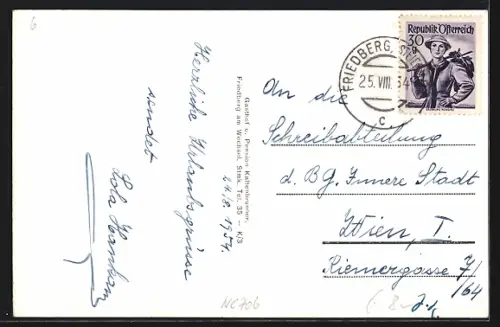 6
Republik Österreich
30
FRIEDBERG
25. VIII. 54
c
Herzliche Urlaubsgrüsse
sendet
24./8. 1954.
Gasthof u. Pension Kaltenbrunner,
Friedberg am Wechsel, Stmk. Tel. 35 — K/3
An die
Schreibabteilung
d. BG. Innere Stadt
Wien, I.
Riemergasse 7/
/64
NC706